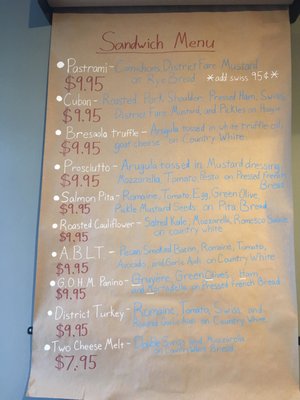 Sandwich Menu
Pastrami- Cornichons, District Fare Mustard
$9.95 on Rye Bread *add swiss 95¢*
Cuban- Roasted Pork Shoulder, Pressed Ham, Swiss,
$9.95 District Fare Mustard, and Pickles on
Bresaola truffle- Arugula tossed in white truffle oil,
$9.95 goat cheese on Country White
Prosciutto- Arugula tossed in Mustard dressing,
$9.95 Mozzarella, Tomato Pesto on Pressed French
Bread
Salmon Pita- Romaine, Tomato, Egg, Green Olive,
$9.95 Pickle Mustard Seeds, on Pita Bread
Roasted Cauliflower- Salted Kale, Mozzarella, Romesco Sauce
$9.95 on country white
A.B.L.T.- Pecan Smoked Bacon, Romaine, Tomato,
$9.95 Avocado, and Garlic Aioli on Country White
G.O.H.M. Panino- Gruyere, Green Olives, Ham,
$9.95 and Mortadella on Pressed French Bread
District Turkey- Romaine, Tomato, Swiss and
$9.95 Garlic Aioli on Country White
Two Cheese Melt- and Mozzarella
$7.95 on Country White Bread